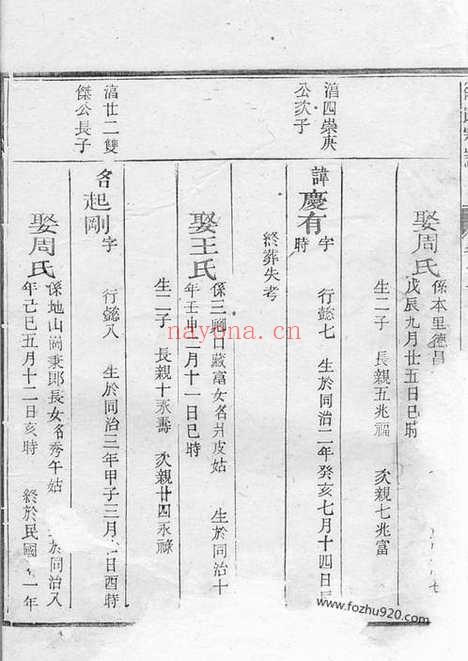 娶周氏
係本里德昌
戊辰九月廿五日巳時
生二子 長親五兆福 次親七兆富
滔四崇庚
公次子
諱慶有
字
時
行懿七 生於同治二年癸亥七月十四日辰
終葬失考
娶王氏
係三 口藏富女名 皮姑 生於同治十
年壬申二月十一日巳時
生二子 長親十永壽 次親廿四永祿
滔廿二雙
傑公長子
名起剛
字 行懿八 生於同治三年甲子三月 日酉時
娶周氏
係地山 秉郎長女名秀午姑 生於同治八
年己巳五月十二日亥時 終於民國 一年
nayona.cn
www.fozhu920.com